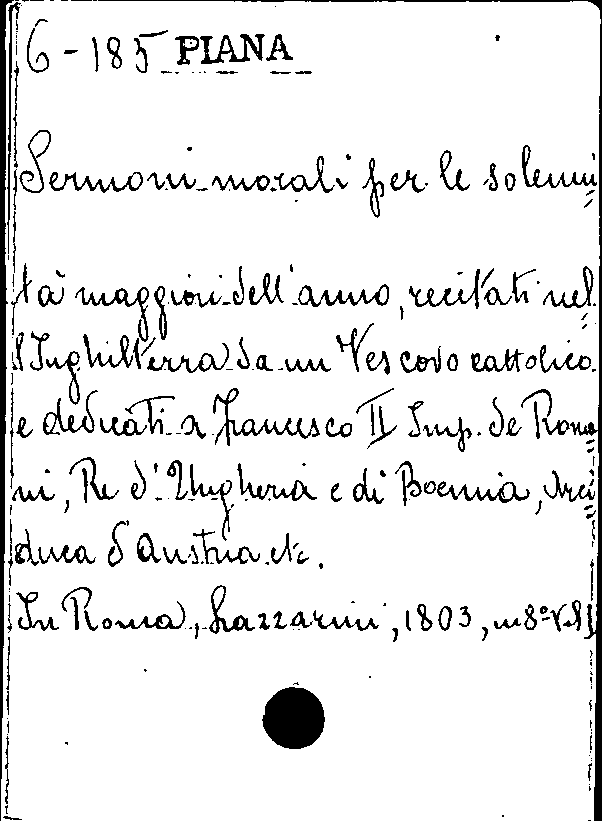 6-185 PIANA
Sermoni morali per le solenni=
tà maggiori dell'anno, recitati nel=
l'Inghilterra da un Vescovo cattolico
e dedicati a Francesco II Imp. de Roma=
ni, Re d'Ungheria e di Boemia, Arci=
duca d'Austria etc.
In Roma, Lazzarini, 1803, in 8º